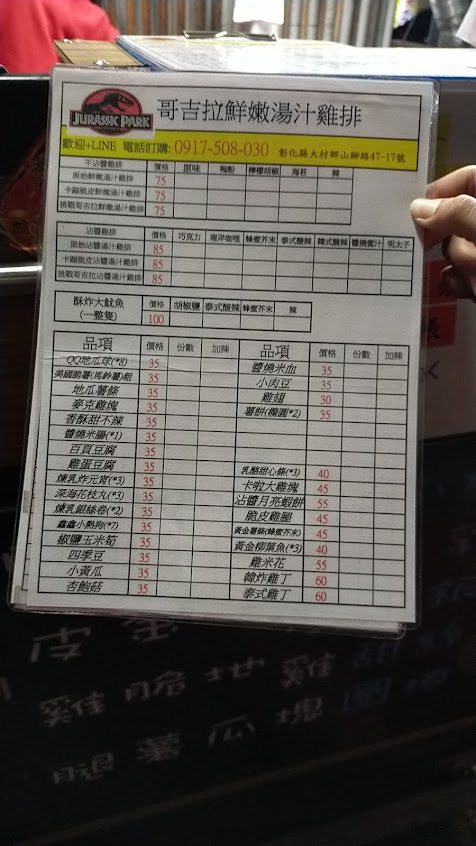 JURASSIC PARK 哥吉拉鮮嫩湯汁雞排
歡迎+LINE 電話訂購: 0917-508-030 彰化縣大村鄉山腳路47-17號
不沾醬雞排 價格 原味 梅粉 檸檬胡椒 海苔 辣
原始鮮嫩湯汁雞排 75
卡蹦脆皮鮮嫩湯汁雞排 75
挑戰哥吉拉鮮嫩湯汁雞排 75
沾醬雞排 價格 巧克力 南洋咖哩 蜂蜜芥末 泰式酸辣 韓式酸辣 醬燒蜜汁 明太子
原始沾醬湯汁雞排 85
卡蹦脆皮沾醬湯汁雞排 85
挑戰哥吉拉沾醬湯汁雞排 85
酥炸大魷魚 價格 胡椒鹽 泰式酸辣 蜂蜜芥末 辣
(一整隻) 100
品項 價格 份數 加辣 品項 價格 份數 加辣
QQ地瓜球(*8) 35 醬燒米血 35
美國脆薯(馬鈴薯)粗 35 小肉豆 35
地瓜薯條 35 雞翅 30
麥克雞塊 35 薯餅(橢圓*2) 35
香酥甜不辣 35
醬燒米腸(*1) 35
百頁豆腐 35
雞蛋豆腐 35 乳酪甜心條(*3) 40
煉乳炸元宵(*3) 35 卡啦大雞塊 45
深海花枝丸(*3) 35 沾醬月亮蝦餅 55
煉乳銀絲卷(*2) 35 脆皮雞腿 45
鑫鑫小熱狗(*7) 35 黃金薯條(蜂蜜芥末) 45
椒鹽玉米筍 35 黃金柳葉魚(*3) 40
四季豆 35 雞米花 55
小黃瓜 35 韓炸雞丁 60
杏鮑菇 35 泰式雞丁 60
皮
雞 脆 地 雞
薯 瓜 塊